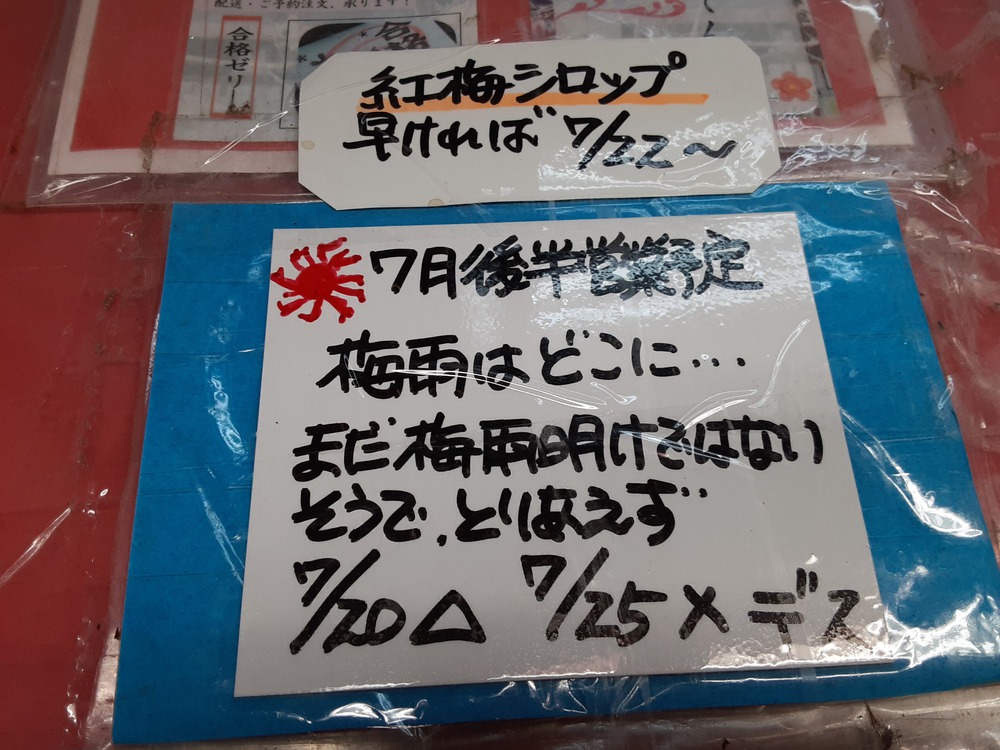 配送・ご予約注文、承ります!
合格ゼリー
紅梅シロップ
早ければ 7/22〜
7月後半営業予定
梅雨はどこに…
まだ梅雨明けではない
そうで、とりあえず
7/20△ 7/25×デス